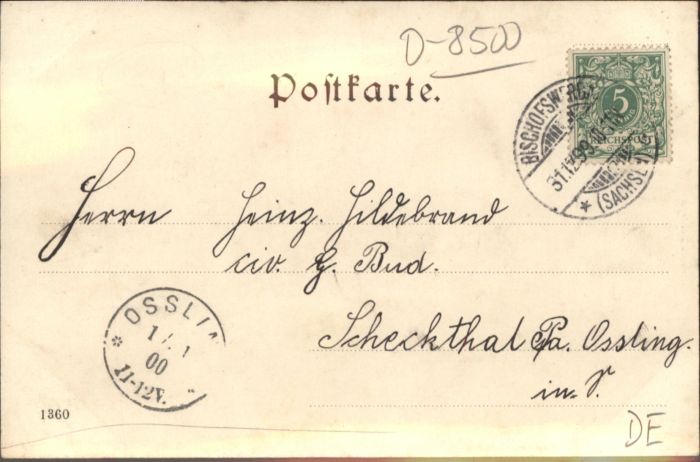 D-8500
Postkarte.
5
REICHSPOST
BISCHOFSWERDA
31.12.99.
(SACHSEN)
Herrn Heinz. Hildebrand
civ. G. Bud.
Scheckthal Pa. Ossling.
in S.
OSSLIN
1/1
00
11-12V.
1360
DE